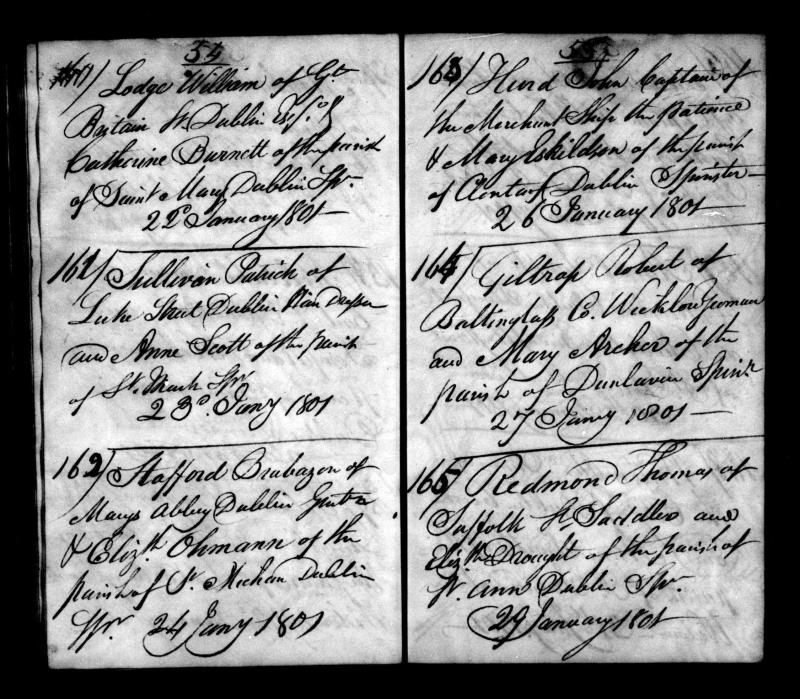 54
160/ Lodge William of Gt.
Britain St. Dublin Esqr. &
Catherine Burnett of the parish
of Saint Mary Dublin Spr.
22d January 1801
161/ Sullivan Patrick of
Luke Street Dublin Hair Dresser
and Anne Scott of the parish
of St. Mark Spr.
23d. Jany 1801
162/ Stafford Brabazon of
Marys Abbey Dublin Gentn
& Elizth Ohmann of the
parish of St. Michan Dublin
Spr 24 Jany 1801
55
163/ Hurd John Captain of
the Merchant Ship the Patience
& Mary Eskildson of the parish
of Clontarf Dublin Spinster
26 January 1801
164/ Giltrap Robert of
Baltinglass Co. Wicklow Yeoman
and Mary Archer of the
parish of Dunlavin Spinr.
27 Jany 1801
165/ Redmond Thomas of
Suffolk St. Saddler and
Elizth Drought of the parish of
St. Ann Dublin Spr.
29 January 1801